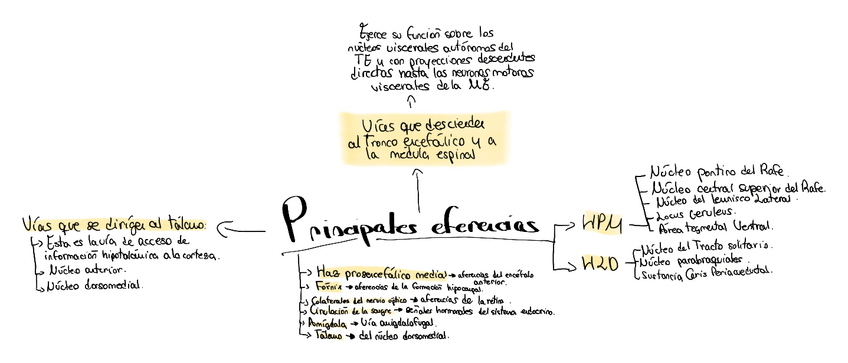 Ejerce su función sobre los
núcleos viscerales autónomos del
TE y con proyecciones descendentes
directas hasta las neuronas motoras
viscerales de la ME.
Vías que descienden
al tronco encefálico y a
la médula espinal
Principales eferencias
Vías que se dirigen al tálamo:
Esta es la vía de acceso de
información hipotalámica a la corteza.
Núcleo anterior.
Núcleo dorsomedial.
HPM
Núcleo pontino del Rafe.
Núcleo central superior del Rafe.
Núcleo del lemnisco Lateral.
Locus Ceruleus.
Área tegmental Ventral.
HLD
Núcleo del Tracto solitario.
Núcleo parabraquiales.
Sustancia Gris Periacueductal.
Haz prosencefálico medial → aferencias del encéfalo
anterior.
Fórnix → aferencias de la formación hipocampal.
Colaterales del nervio óptico → aferencias de la retina.
Circulación de la sangre → señales hormonales del sistema endocrino.
Amígdala → Vía amigdalofugal.
Tálamo → del núcleo dorsomedial.